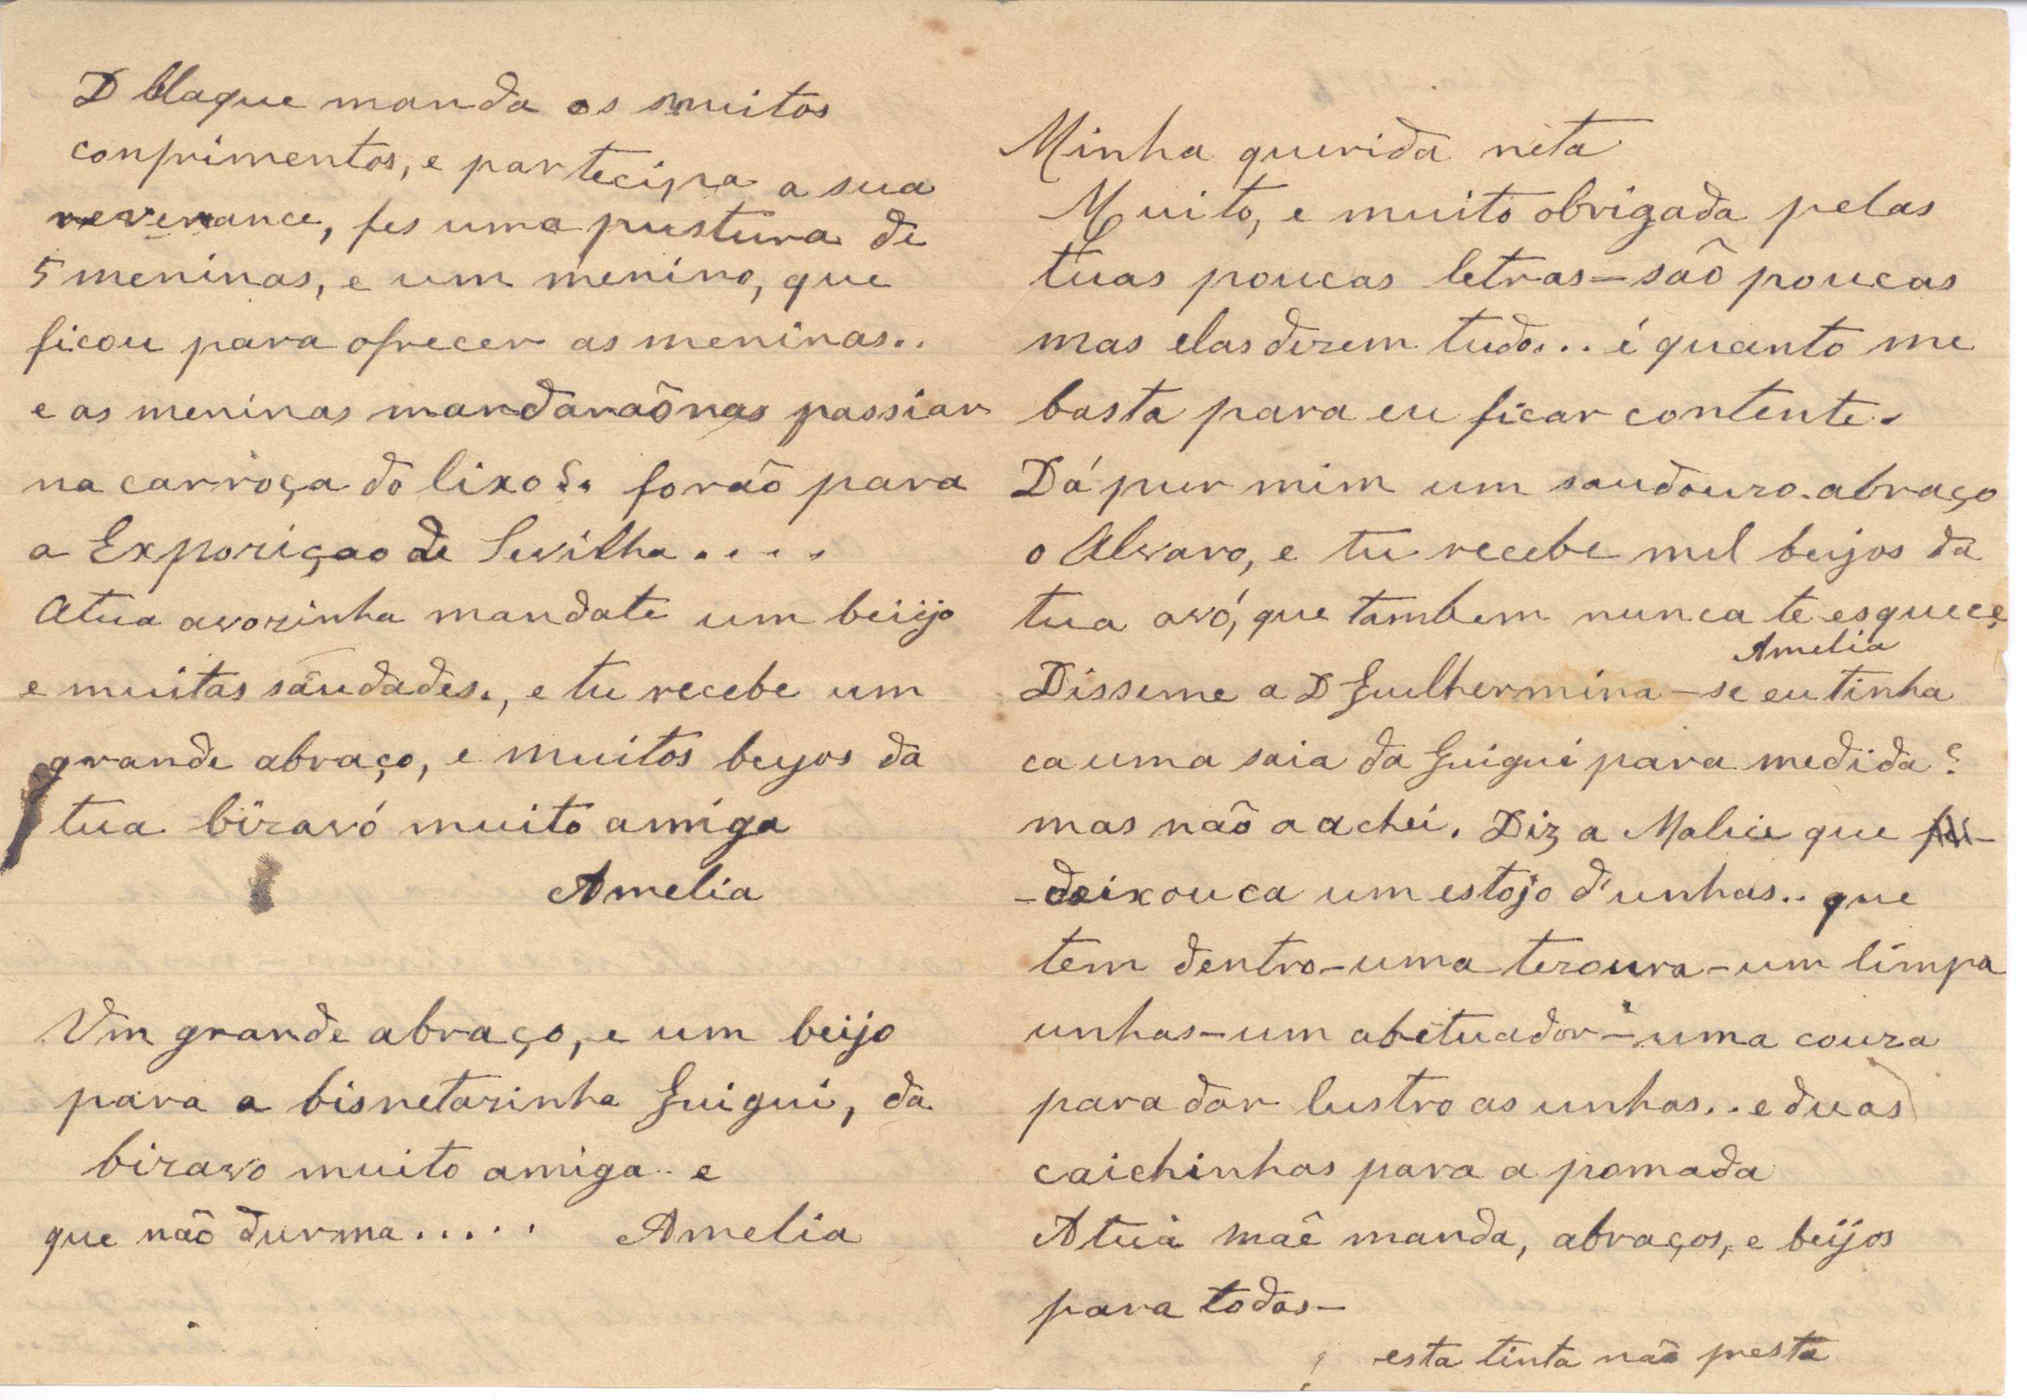 D Blaque manda os muitos
conprimentos, e partecipa a sua
reverance, fes uma pustura de
5 meninas, e um menino, que
ficou para ofrecer as meninas..
e as meninas mandaraõnas passiar
na carroça do lixo.. foraõ para
a Expoziçao de Sevilha....
Atua avozinha mandate um beiijo
e muitas saudades., e tu recebe um
grande abraço, e muitos beijos da
tua bizavó muito amiga
Amelia
Um grande abraço, e um beijo
para a bisnetazinha Guigui, da
bizavo muito amiga.. e
que naõ durma..... Amelia
Minha querida neta
Muito, e muito obrigada pelas
tuas poucas letras – saõ poucas
mas elas dizem tudo... é quanto me
basta para eu ficar contente.
Dá pur mim um saudouzo abraço
o Alvaro, e tu recebe mil beijos da
tua avó, que tambem nunca te esqueçe
Amelia
Disseme a D Guilhermina – se eu tinha
ca uma saia da Guigui para medida?
mas naõ a achei. Diz a Malice que
– deixou ca um estojo d'unhas.. que
tem dentro – uma tezoura – um limpa
unhas – um abetuador – uma couza
para dar lustro as unhas.. e duas
caichinhas para a pomada
A tua maê manda, abraços, e beijos
para todos –
esta tinta naõ presta